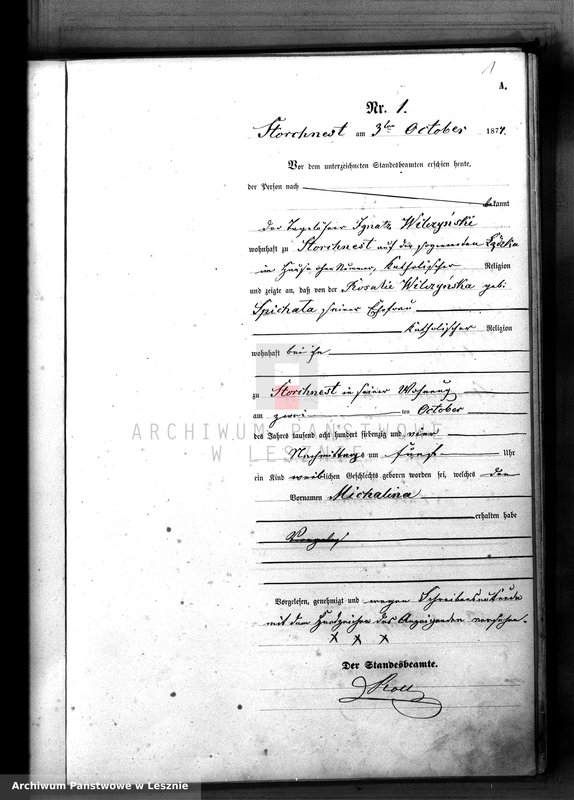 1
A.
Nr. 1.
Storchnest am 3ten October 1874.
Vor dem unterzeichneten Standesbeamten erschien heute,
der Person nach
bekannt
der Tagelöhner Ignatz Wilczyński
wohnhaft zu Storchnest auf der sogenannten
im Hause ohne Nummer, katholischer Religion
und zeigte an, daß von der Rosalie Wilczyńska geb.
Spichala seiner Ehefrau
katholischer Religion
wohnhaft bei ihm
zu Storchnest in seiner Wohnung
am zwei ten October
des Jahres tausend acht hundert siebenzig und vier
Nachmittags um fünf Uhr
ein Kind weiblichen Geschlechts geboren worden sei, welches den
Vornamen Michalina
erhalten habe
Vorgelesen, genehmigt und wegen Schreibensunkunde
mit dem Handzeichen des Anzeigenden versehen.
x x x
Der Standesbeamte.
ARCHIWUM PAŃSTWOWE
W LESZNIE
Archiwum Panstwowe w Lesznie